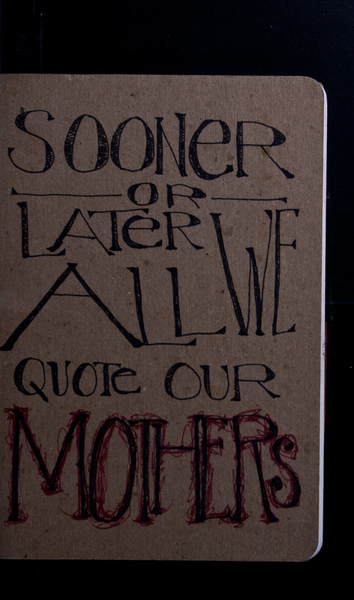 SOONeR
OR
LATeR WE
ALL
QUOTe OUR
MOTHERS